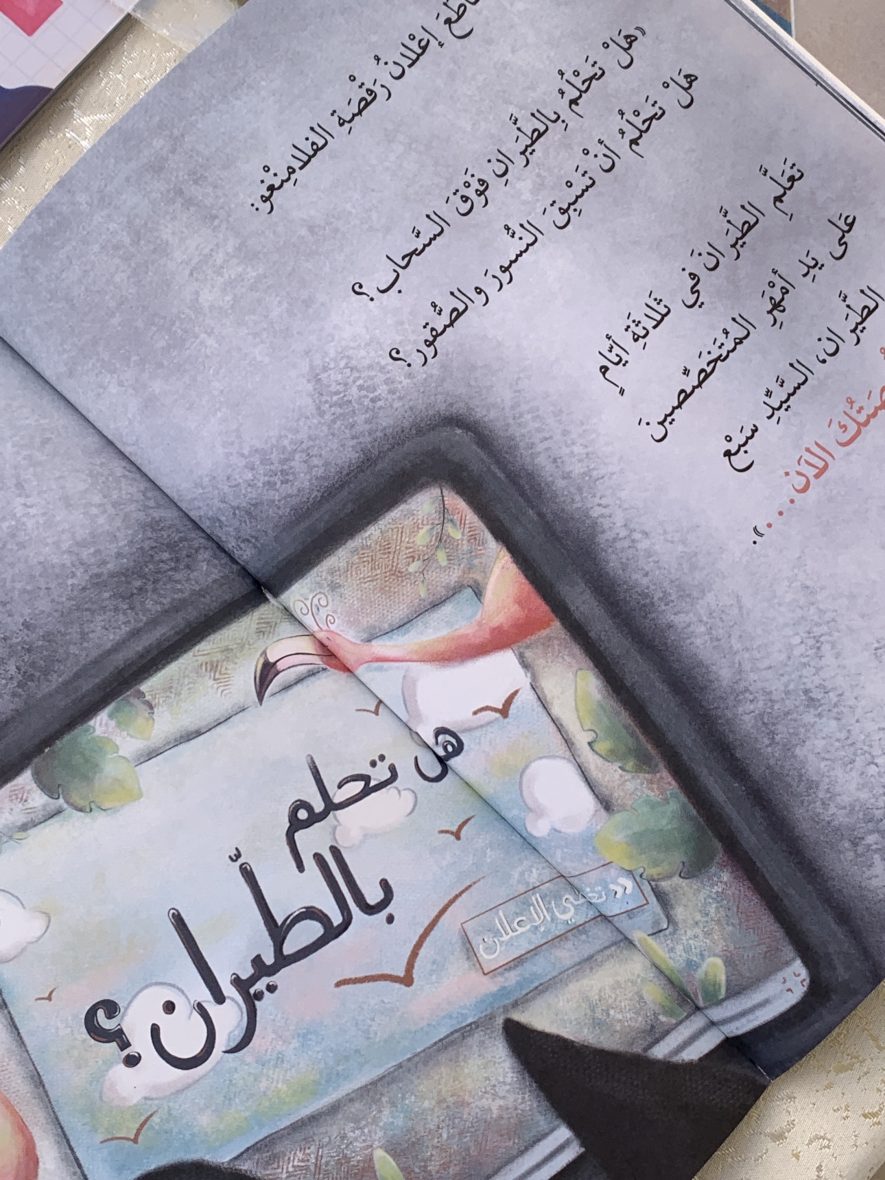 إعْلانُ رَقْصَةِ الفلامِنْغو:
«هَلْ تَحْلُمُ بِالطَّيَرانِ فَوْقَ السَّحاب؟
هَلْ تَحْلُمُ أنْ تَسْبِقَ النُّسورَ والصُّقور؟
تَعَلَّمِ الطَّيَرانَ في ثَلاثَةِ أيّامٍ
عَلى يَدِ أمْهَرِ المُتَخَصِّصينَ
الطَّيَران، السَّيِّدِ سَبْع
الآن...».
هل تحلم
بالطيران؟
« تخطي الإعلان